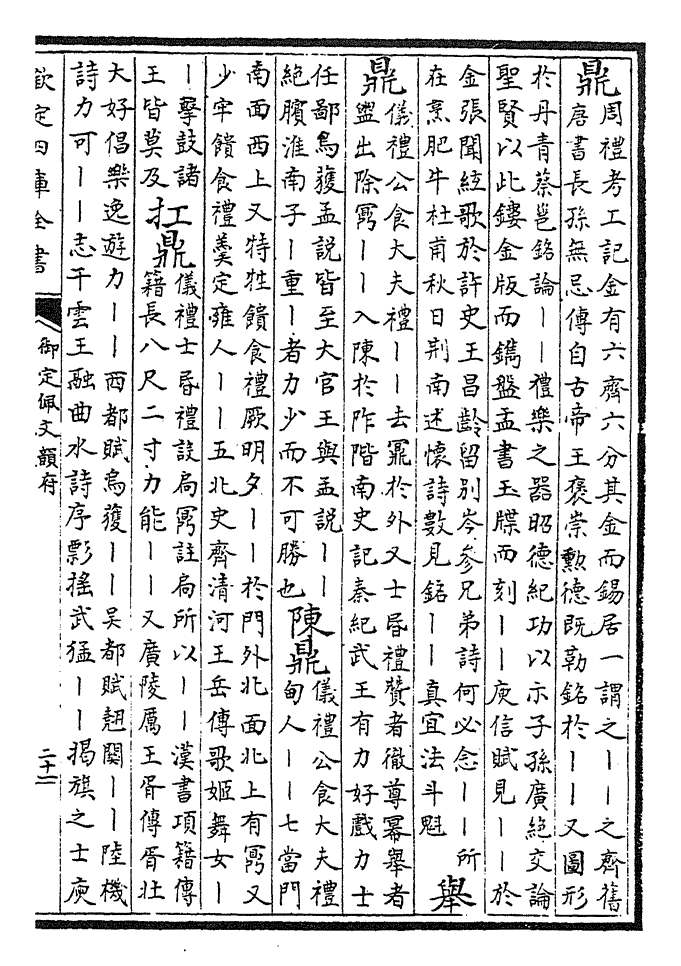 鼎
周禮考工記金有六齊六分其金而錫居一謂之丨丨之齊舊
唐書長孫無忌傳自古帝王褒崇勲德既勒銘於丨丨又圖形
於丹青蔡邕銘論丨丨禮樂之器昭德紀功以示子孫廣絶交論
聖賢以此鏤金版而鐫盤盂書玉牒而刻丨丨庾信賦見丨丨於
金張聞絃歌於許史王昌齡留別岑參兄弟詩何必念丨丨所
在烹肥牛杜甫秋日荆南述懷詩數見銘丨丨真宜法斗魁
舉
鼎
儀禮公食大夫禮丨丨去鼏於外又士昏禮贊者徹尊冪舉者
盥出除鼏丨丨入陳於阼階南史記秦紀武王有力好戲力士
任鄙烏獲孟説皆至大官王與孟説丨丨
絶臏淮南子丨重丨者力少而不可勝也
陳鼎
儀禮公食大夫禮
甸人丨丨七當門
南面西上又特牲饋食禮厥明夕丨丨於門外北面北上有鼏又
少牢饋食禮羮定雍人丨丨五北史齊清河王岳傳歌姬舞女丨
丨擊鼓諸
王皆莫及
扛鼎
儀禮士昏禮設扃鼏註扃所以丨丨漢書項籍傳
籍長八尺二寸力能丨丨又廣陵厲王胥傳胥壯
大好倡樂逸遊力丨丨西都賦烏獲丨丨吳都賦翹關丨丨陸機
詩力可丨丨志干雲王融曲水詩序彯搖武猛丨丨揭旗之士庾
欽定四庫全書
御定佩文韻府
二十二